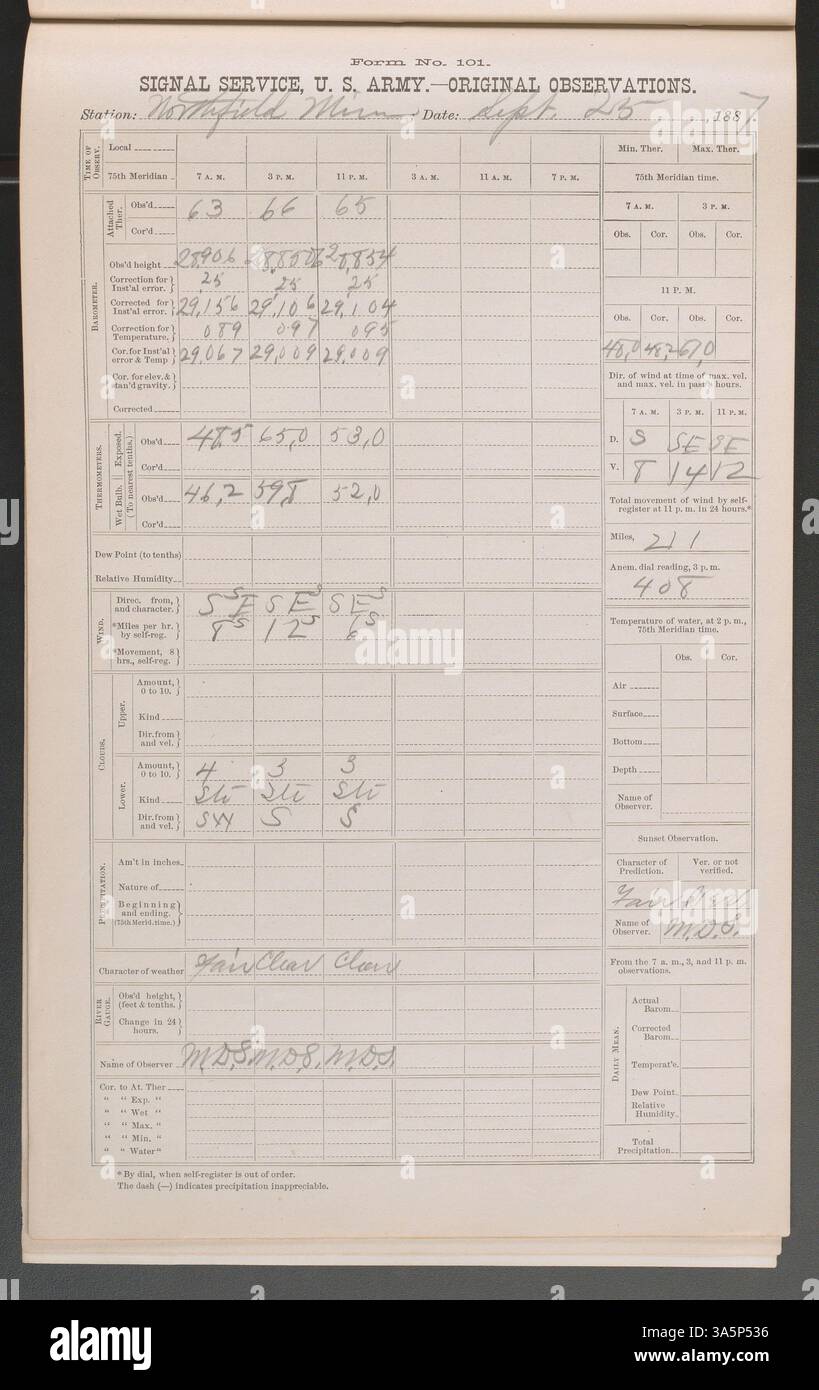 Form No. 101.
SIGNAL SERVICE, U. S. ARMY.—ORIGINAL OBSERVATIONS.
Station: Northfield Minn Date: Sept. 25, 1887.
TIME OF OBSERV.
Local
75th Meridian 7 A. M. 3 P. M. 11 P. M. 3 A. M. 11 A. M. 7 P. M.
BAROMETER.
Attached Ther.
Obs'd 63 66 65
Cor'd
Obs'd height 28,906 28,850 28,854
Correction for Inst'al error. ,25 ,25 ,25
Corrected for Inst'al error. 29,156 29,106 29,104
Correction for Temperature, 089 097 095
Cor. for Inst'al error & Temp 29,067 29,009 29,009
Cor. for elev. & stan'd gravity.
Corrected
THERMOMETERS.
(To nearest tenths.)
Exposed.
Obs'd 48,5 65,0 53,0
Cor'd
Wet Bulb.
Obs'd 46,2 59,8 52,0
Cor'd
Dew Point (to tenths)
Relative Humidity
WIND.
Direc. from, and character. S SE S SE S SE S
*Miles per hr. by self-reg. 8 12 6
*Movement, 8 hrs., self-reg.
CLOUDS.
Upper.
Amount, 0 to 10.
Kind
Dir. from and vel.
Lower.
Amount, 0 to 10. 4 3 3
Kind Str Str Str
Dir. from and vel. S S
PRECIPITATION.
Am't in inches
Nature of
Beginning and ending. (75th Merid. time.)
Character of weather Fair Clear Clear
RIVER GAUGE.
Obs'd height, (feet & tenths.
Change in 24 hours.
Name of Observer M.D.S. M.D.S. M.D.S.
Cor. to At. Ther
" " Exp. "
" " Wet "
" " Max. "
" " Min. "
" " Water "
* By dial, when self-register is out of order.
The dash (—) indicates precipitation inappreciable.
Min. Ther. Max. Ther.
75th Meridian time.
7 A. M. 3 P. M.
Obs. Cor. Obs. Cor.
11 P. M.
Obs. Cor. Obs. Cor.
48,0 48,2 67,0
Dir. of wind at time of max. vel. and max. vel. in past 8 hours.
7 A. M. 3 P. M. 11 P. M.
D. S SE SE
V. 8 14 12
Total movement of wind by self-register at 11 p. m. in 24 hours.*
Miles, 211
Anem. dial reading, 3 p. m.
408
Temperature of water, at 2 p. m., 75th Meridian time.
Obs. Cor.
Air
Surface
Bottom
Depth
Name of Observer.
Sunset Observation.
Character of Prediction. Ver. or not verified.
Fair
Name of Observer. M.D.S.
From the 7 a. m., 3, and 11 p. m. observations.
DAILY MEAN.
Actual Barom
Corrected Barom
Temperat'e.
Dew Point
Relative Humidity
Total Precipitation
alamy
3A5P536